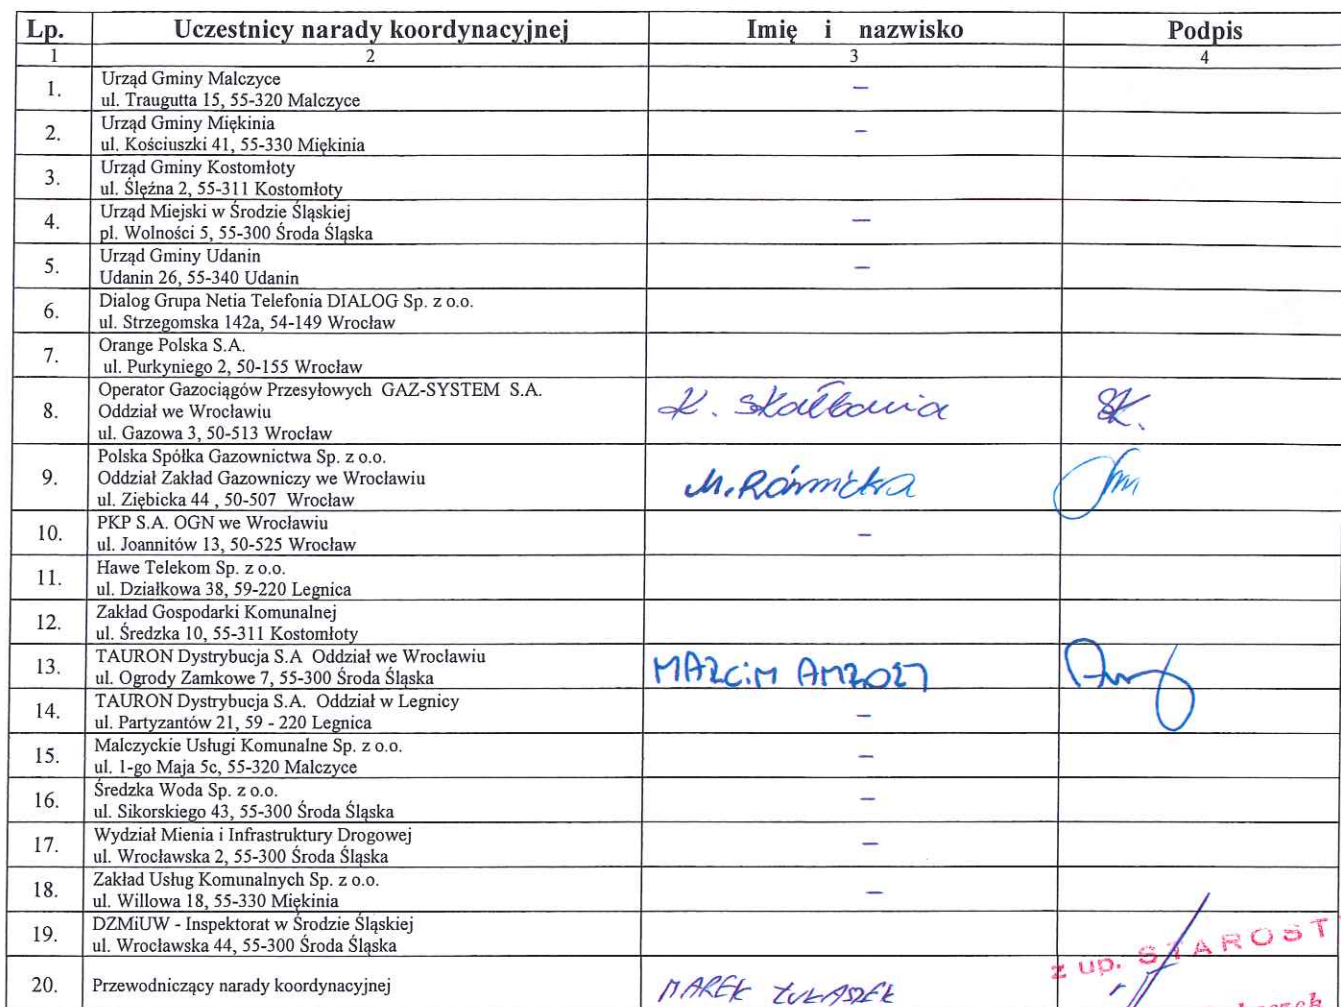 Lp. Uczestnicy narady koordynacyjnej Imię i nazwisko Podpis
1 2 3 4
1. Urząd Gminy Malczyce
ul. Traugutta 15, 55-320 Malczyce –
2. Urząd Gminy Miękinia
ul. Kościuszki 41, 55-330 Miękinia –
3. Urząd Gminy Kostomłoty
ul. Ślężna 2, 55-311 Kostomłoty
4. Urząd Miejski w Środzie Śląskiej
pl. Wolności 5, 55-300 Środa Śląska –
5. Urząd Gminy Udanin
Udanin 26, 55-340 Udanin –
6. Dialog Grupa Netia Telefonia DIALOG Sp. z o.o.
ul. Strzegomska 142a, 54-149 Wrocław
7. Orange Polska S.A.
ul. Purkyniego 2, 50-155 Wrocław
8. Operator Gazociągów Przesyłowych GAZ-SYSTEM S.A.
Oddział we Wrocławiu K. SK.
ul. Gazowa 3, 50-513 Wrocław
9. Polska Spółka Gazownictwa Sp. z o.o.
Oddział Zakład Gazowniczy we Wrocławiu M.
ul. Ziębicka 44 , 50-507 Wrocław
10. PKP S.A. OGN we Wrocławiu
ul. Joannitów 13, 50-525 Wrocław –
11. Hawe Telekom Sp. z o.o.
ul. Działkowa 38, 59-220 Legnica
12. Zakład Gospodarki Komunalnej
ul. Średzka 10, 55-311 Kostomłoty
13. TAURON Dystrybucja S.A Oddział we Wrocławiu
ul. Ogrody Zamkowe 7, 55-300 Środa Śląska MARCIN
14. TAURON Dystrybucja S.A. Oddział w Legnicy
ul. Partyzantów 21, 59 - 220 Legnica –
15. Malczyckie Usługi Komunalne Sp. z o.o.
ul. 1-go Maja 5c, 55-320 Malczyce –
16. Średzka Woda Sp. z o.o.
ul. Sikorskiego 43, 55-300 Środa Śląska –
17. Wydział Mienia i Infrastruktury Drogowej
ul. Wrocławska 2, 55-300 Środa Śląska –
18. Zakład Usług Komunalnych Sp. z o.o.
ul. Willowa 18, 55-330 Miękinia –
19. DZMiUW - Inspektorat w Środzie Śląskiej
ul. Wrocławska 44, 55-300 Środa Śląska
z up. STAROST
20. Przewodniczący narady koordynacyjnej MAREK ŁUKASZEK